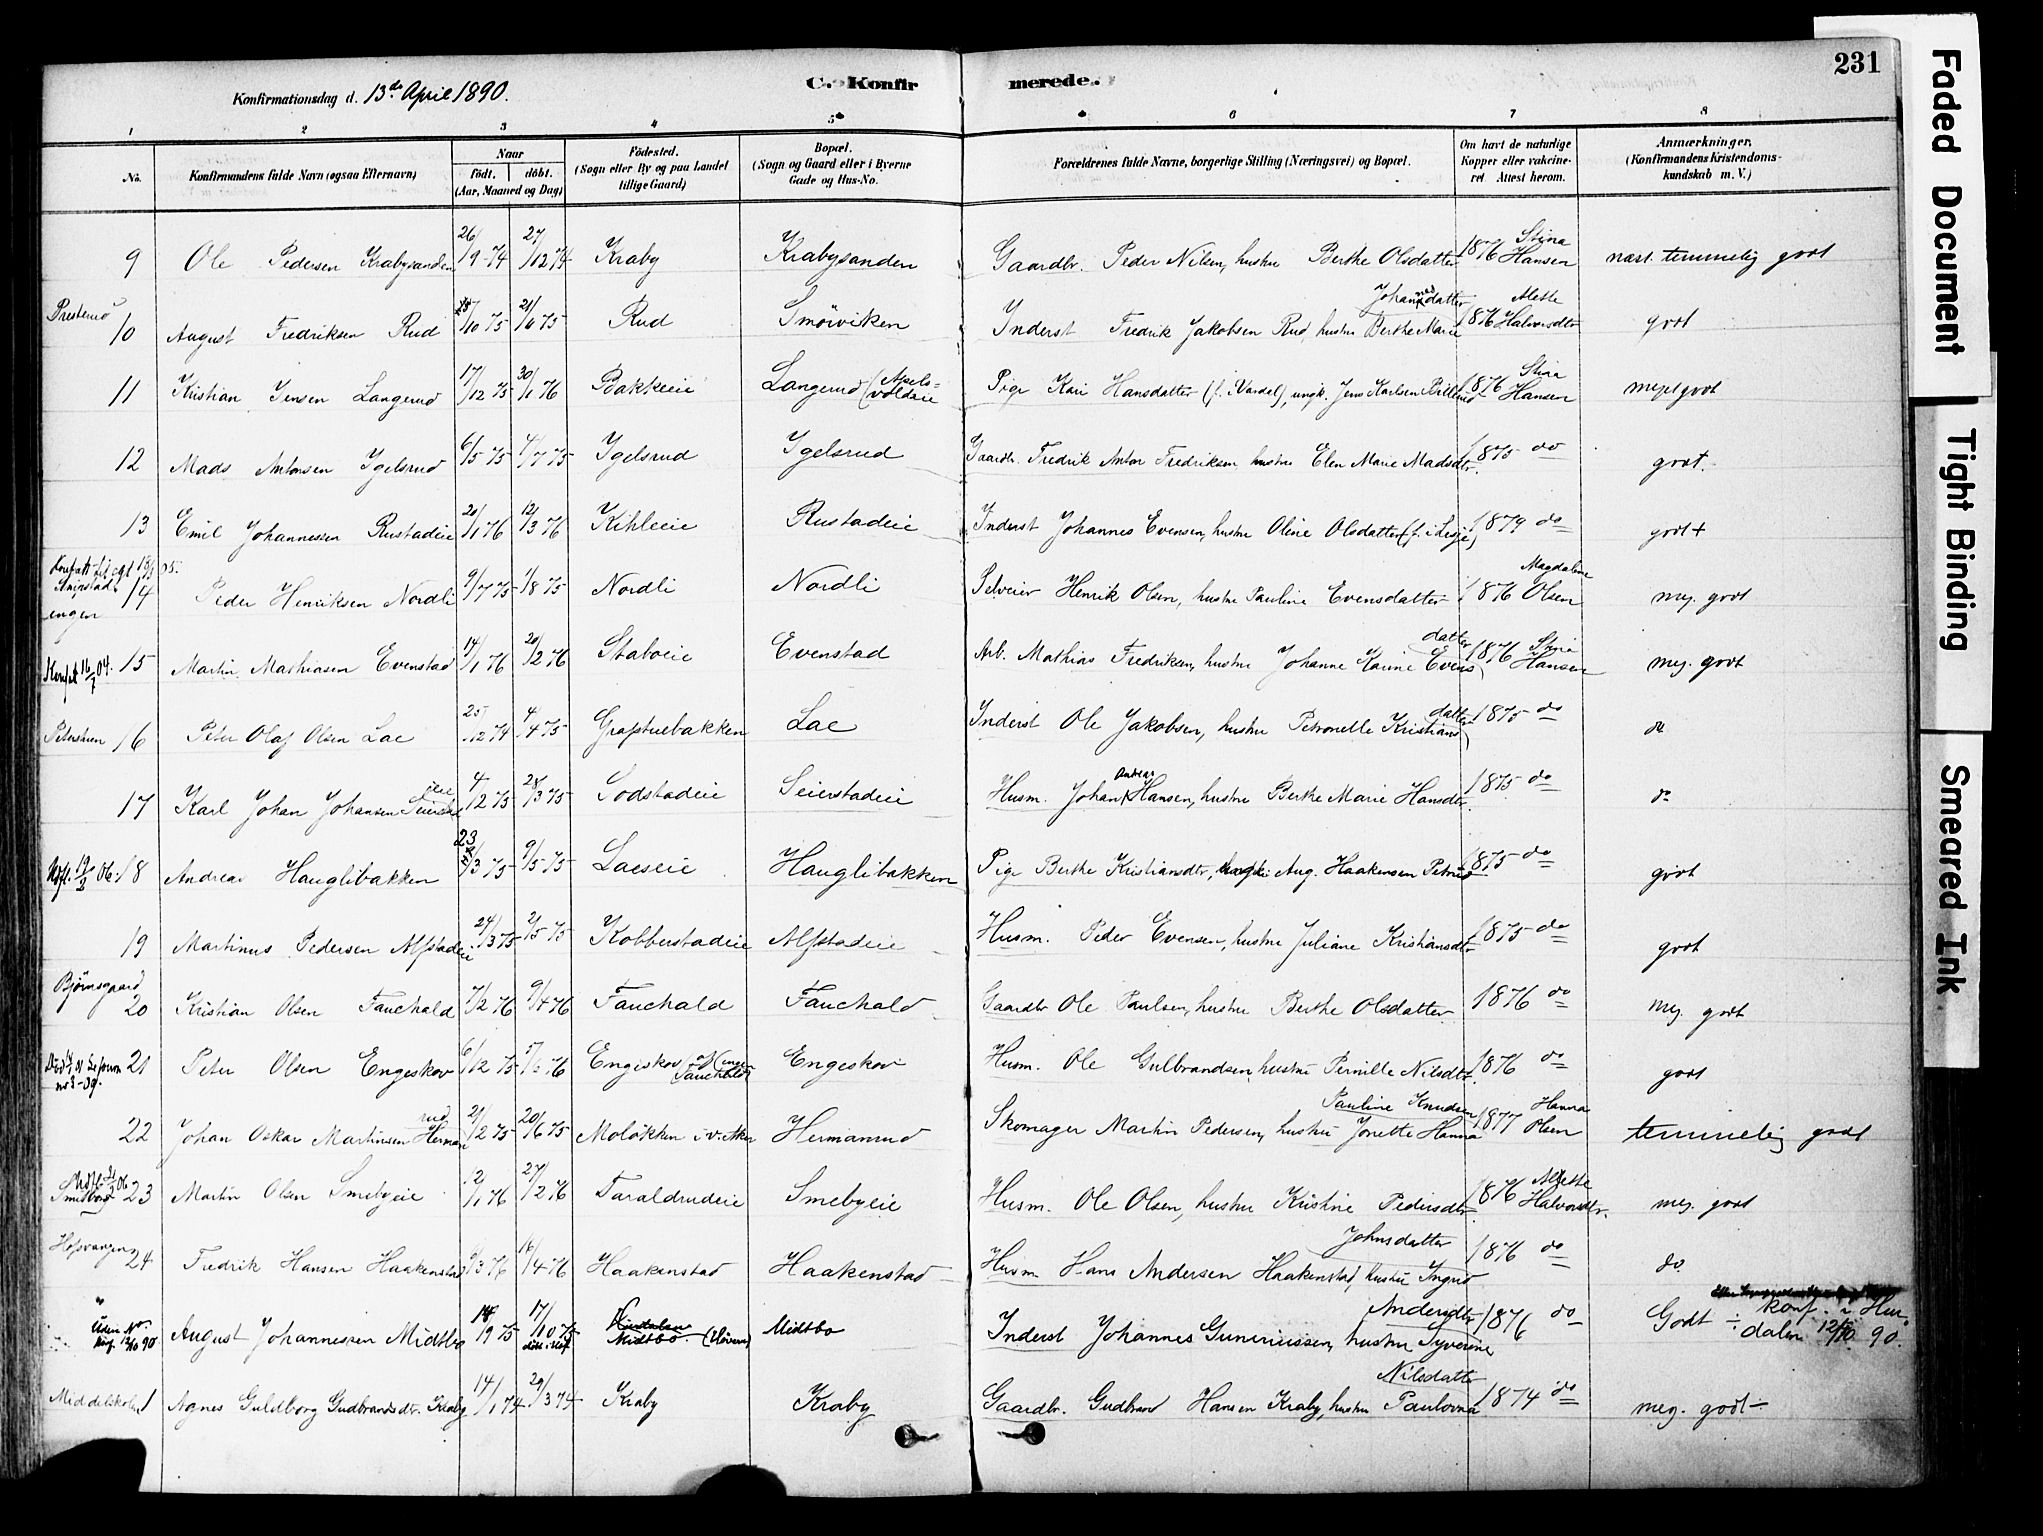 231
Konfirmationsdag d. 13de April 1890.
C. Konfirmerede.
1 2 3 4 5 6 7 8
No.
Konfirmandens fulde Navn (ogsaa Efternavn)
Naar
födt. döbt.
(Aar, Maaned og Dag)
Födested.
(Sogn eller By og paa Landet
tillige Gaard)
Bopæl.
(Sogn og Gaard eller i Byerne
Gade og Hus-No.
Forældrenes fulde Navne, borgerlige Stilling (Næringsvei) og Bopæl.
Om havt de naturlige
Kopper eller vakcine-
ret Attest herom.
Anmærkninger,
(Konfirmandens Kristendoms-
kundskab m. V.)
9 Ole Pedersen Krabysanden 26/9 74 27/12 74 Kraby Krabysanden Gaardbr. Peder Nilsen, hustru Berthe Olsdatter 1876 Stina Hansen næst. temmelig godt
10 August Fredriksen Rud /10 75 21/ 75 Rud Smörviken Inderst Fredrik Jakobsen Rud, hustru Berthe Marie Johannesdatter 1876 Alette Halvorsdtr godt
11 Kristian Jensen Langerud 17/12 75 30/1 76 Bakkeeie Langerud (Apelsvoldeie Pige Kari Hansdatter (f. i Vardal), ungk. Jens Karlsen Billerud 1876 Stina Hansen meget godt
12 Mads Antonsen Ygelsrud 6/5 75 4/7 75 Ygelsrud Ygelsrud Gaardb. Fredrik Anton Fredriksen hustru Elen Marie Madsdtr. 1875 do godt.
13 Emil Johannessen Rustadeie 20/1 76 12/3 76 Kihleeie Rustadeie Inderst Johannes Evensen, hustru Oline Olsdatter (f. i Lesje) 1879 do godt +
engen 14 Peder Henriksen Nordli 9/7 75 1/8 75 Nordli Nordli Selveier Henrik Olsen, hustru Pauline Evensdatter 1876 Magdalene Olsen meg. godt
16/7 04. 15 Martin Mathiasen Evenstad 14/1 76 20/2 76 Staboeie Evenstad Arb. Mathias Fredriksen, hustru Johanne Karine Evensdatter 1876 Stina Hansen meg. godt
16 Peter Olaf Olsen Lae 25/12 74 4/4 75 Grafstuebakken Lae Inderst Ole Jakobsen, hustru Petronelle Kristiansdatter 1875 do do
17 Karl Johan Johansen Seierstadeie 4/2 75 28/3 75 Sodstadeie Seierstadeie Husm. Johan Andreas Hansen, hustru Berthe Marie Hansdtr. 1875 do do
18 Andreas Hauglibakken 23/3 75 9/5 75 Laeseie Hauglibakken Pige Berthe Kristiansdtr, Aug. Haakensen Petrud 1875 do godt
19 Martinus Pedersen Alfstadeie 24/3 75 2/5 75 Kobberstadeie Alfstadeie Husm. Peder Evensen, hustru Juliane Kristiansdtr 1875 do godt
Björnsgaard 20 Kristian Olsen Fauchald 7/2 76 9/4 76 Fauchald Fauchald Gaardbr Ole Paulsen, hustru Berthe Olsdatter 1876 do meg. godt
21 Peter Olsen Engeskov 6/12 75 76 Engeskov Engeskov Husm. Ole Gulbrandsen, hustru Pernille Nilsdtr. 1876 do godt
22 Johan Oskar Martinsen Hermanrud 21/2 75 20/6 75 Molökken i v. Aker Hermanrud Skomager Martin Pedersen, hustru Jonette Hanna Pauline Knudsen 1877 Hanna Olsen temmelig godt
23 Martin Olsen Smebyeie 2/1 76 27/2 76 Taraldrudeie Smebyeie Husm. Ole Olsen, hustru Kristine Pedersdtr. 1876 Alette Halvorsdtr. meg. godt
Hofsvangen 24 Fredrik Hansen Haakenstad 9/3 76 16/4 76 Haakenstad Haakenstad Husm Hans Andersen Haakenstad, hustru Ingrid Johnsdatter 1876 do do.
Uden No. 12/10 90 August Johannessen Midtbo /9 75 17/10 75 Midtbo Midtbo Inderst Johannes Guneriussen, hustru Syverine Andersdtr. 1876 do Godt ÷ konf. i Hurdalen 12/10 90.
Middelskolen 1 Agnes Guldborg Gudbrandsdtr. Kraby 14/1 74 29/3 74 Kraby Kraby Gaardbr. Gudbrand Hansen Kraby, hustru Paulovna Nilsdatter 1874 do meg. godt ÷
Faded Document
Tight Binding
Smeared Ink